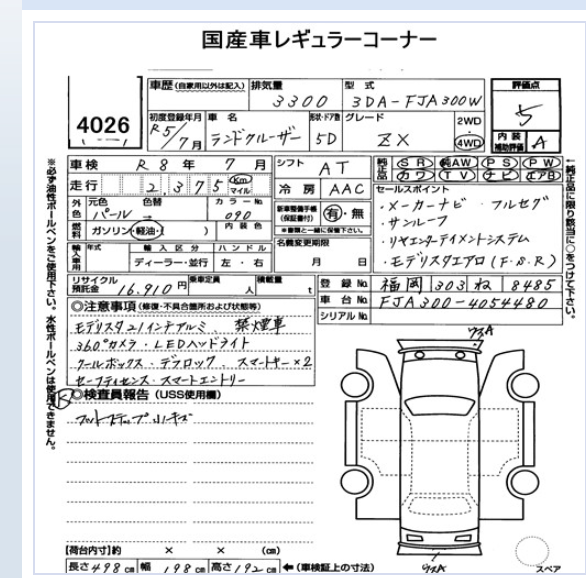 国産車レギュラーコーナー
4026
車歴(自家用以外は記入) 排気量 型式 評価点
3300 3DA-FJA300W 5
初度登録年月 車名 形状・ドア数 グレード 2WD
R5/7月 ランドクルーザー 5D ZX 4WD 内装補助評価 A
車検 R8年 7月 シフト AT 純正品 SR 純AW PS PW
走行 2,375 Km マイル 冷房 AAC カワ TV ナビ エアB
外色 元色 色替 カラーNo. 新車整備手帳(保証書付) 有・無 セールスポイント
パール → 090 *書類と一緒に保管下さい。 ・メーカーナビ フルセグ
燃料 ガソリン・軽油・( ) 内装色 名義変更期限 ・サンルーフ
輸入車用 年式 輸入区分 ハンドル 月 日 ・リヤエンターテイメントシステム
ディーラー・並行 左・右 ・モデリスタエアロ(F・S・R)
リサイクル預託金 16,910円 乗車定員 人 積載量 t 登録No. 福岡 303 ね 8485
車台No. FJA300-4054480
シリアルNo.
◎注意事項(修復・不具合箇所および状態等)
モデリスタ21インチアルミ 禁煙車
360°カメラ・LEDヘッドライト
クールボックス デフロック スマートキー×2
セーフティセンス・スマートエントリー
◎検査員報告(USS使用欄)
フットステップ小キズ
【荷台内寸】約 × × (cm)
長さ498cm 幅198cm 高さ192cm ←(車検証上の寸法)
スペア
※必ず油性ボールペンをご使用下さい。水性ボールペンは使用できません。
←純正品に限り該当に○をつけて下さい。